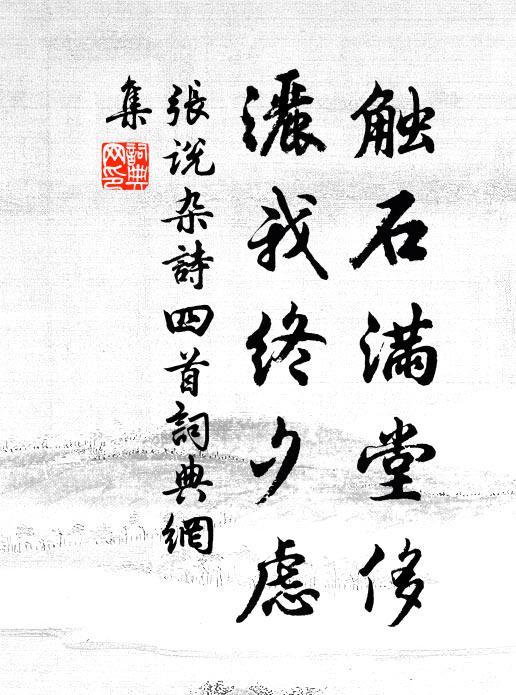 触石满堂侈
灑我终夕虑
张说杂诗四首詞典網
集
詞典
网印